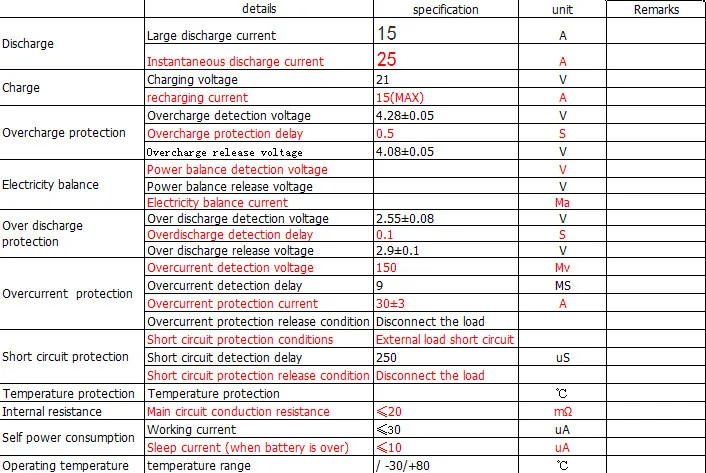 details specification unit Remarks
Discharge Large discharge current 15 A
Instantaneous discharge current 25 A
Charge Charging voltage 21 V
recharging current 15(MAX) A
Overcharge protection Overcharge detection voltage 4.28±0.05 V
Overcharge protection delay 0.5 S
Overcharge release voltage 4.08±0.05 V
Electricity balance Power balance detection voltage V
Power balance release voltage V
Electricity balance current Ma
Over discharge protection Over discharge detection voltage 2.55±0.08 V
Overdischarge detection delay 0.1 S
Over discharge release voltage 2.9±0.1 V
Overcurrent protection Overcurrent detection voltage 150 Mv
Overcurrent detection delay 9 MS
Overcurrent protection current 30±3 A
Overcurrent protection release condition Disconnect the load
Short circuit protection Short circuit protection conditions External load short circuit
Short circuit detection delay 250 uS
Short circuit protection release condition Disconnect the load
Temperature protection Temperature protection ℃
Internal resistance Main circuit conduction resistance ≤20 mΩ
Self power consumption Working current ≤30 uA
Sleep current (when battery is over) ≤10 uA
Operating temperature temperature range / -30/+80 ℃